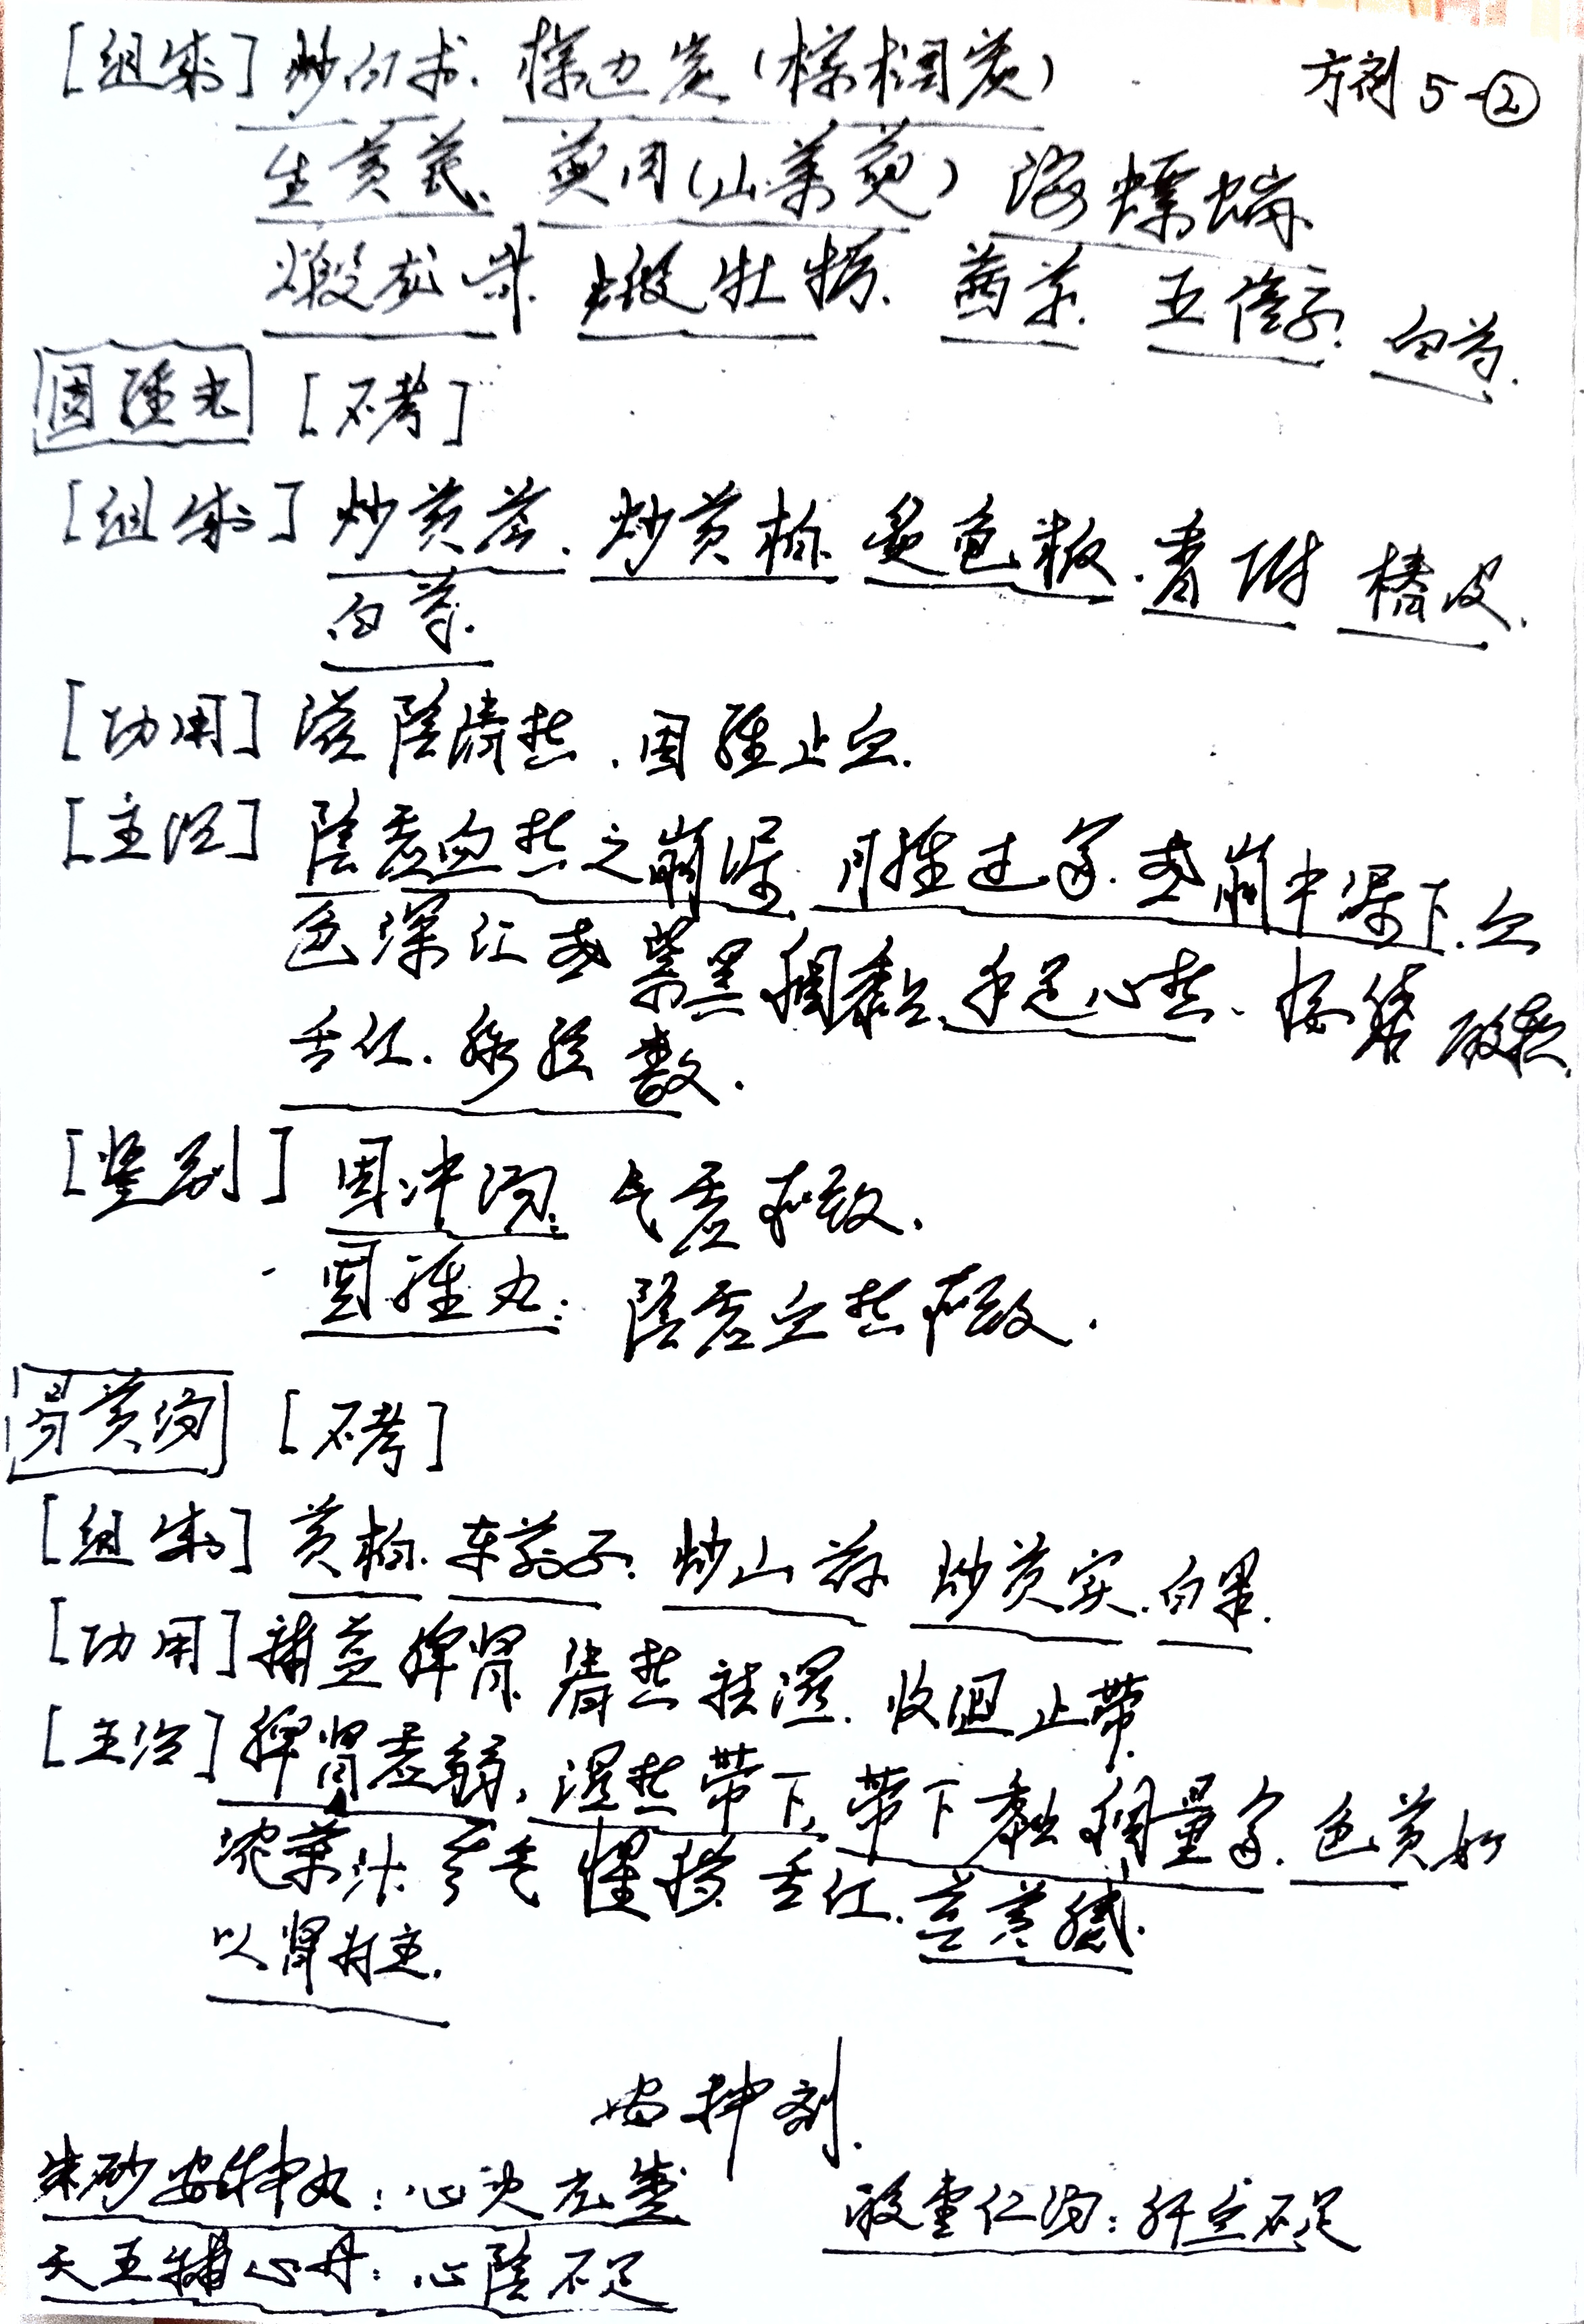 方剂 5-②
[组成] 炒白术. 棕边炭 (棕榈炭)
生黄芪. 萸肉 (山茱萸) 海螵蛸.
煅龙骨. 煅牡蛎. 茜草. 五倍子. 白芍.
固经丸 [不考]
[组成] 炒黄芩. 炒黄柏. 炙龟板. 香附 椿皮.
白芍.
[功用] 滋阴清热. 固经止血.
[主治] 阴虚血热之崩漏. 月经过多. 或崩中漏下. 血
色深红或紫黑稠黏. 手足心热. 腰膝酸软.
舌红. 脉弦数.
[鉴别] 固冲汤: 气虚所致.
固经丸: 阴虚血热所致.
易黄汤 [不考]
[组成] 黄柏. 车前子. 炒山药 炒芡实. 白果.
[功用] 補益脾肾. 清热祛湿. 收涩止带.
[主治] 脾肾虚弱, 湿热带下, 带下黏稠量多. 色黄如
浓茶汁. 舌红. 苔黄腻.
以肾为主.
安神剂.
朱砂安神丸: 心火亢盛
酸枣仁汤: 肝血不足
天王補心丹: 心阴不足